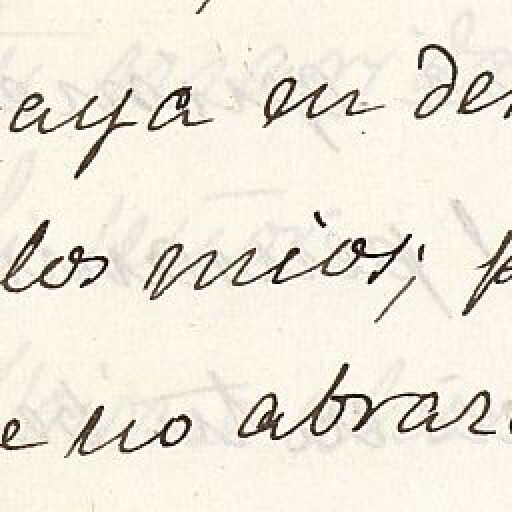 aya en de
los mios; p
e no abraz